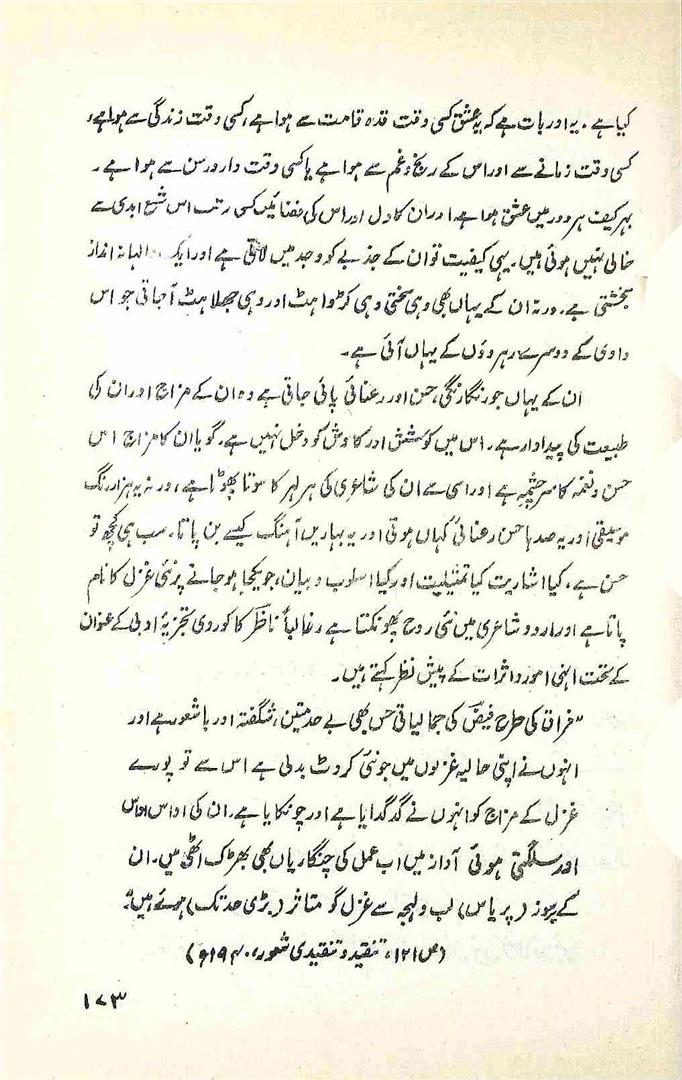 کیا ہے۔ یہ اور بات ہے کہ یہ عشق کسی وقت قد و قامت سے ہوا ہے، کسی وقت زندگی سے ہوا ہے،
کسی وقت زمانے سے اور اس کے رنج و غم سے ہوا ہے یا کسی وقت دار و رسن سے ہوا ہے۔
بہر کیف ہر دور میں عشق ہوا ہے اور ان کا دل اور اس کی فضائیں کسی رتب اس شمع ابدی سے
خالی نہیں ہوئی ہیں۔ یہی کیفیت تو ان کے جذبے کو وجد میں لاتی ہے اور ایک والہانہ انداز
بخشتی ہے۔ ورنہ ان کے یہاں بھی وہی سختی وہی کڑواہٹ اور وہی جھلاہٹ آجاتی جو اس
وادی کے دوسرے رہروؤں کے یہاں آئی ہے۔
ان کے یہاں جو رنگارنگی، حسن اور رعنائی پائی جاتی ہے وہ ان کے مزاج اور ان کی
طبیعت کی پیداوار ہے۔ اس میں کوشش اور کاوش کو دخل نہیں ہے۔ گویا ان کا مزاج اس
حسن و نغمہ کا سرچشمہ ہے اور اسی سے ان کی شاعری کی ہر لہر کا سوتا پھوٹا ہے، ورنہ یہ ہزار رنگ
موسیقی اور یہ صدہا حسن رعنائی کہاں ہوتی اور یہ بہاریں آہنگ کیسے بن پاتا۔ سب ہی کچھ تو
حسن ہے، کیا اشاریت کیا تمثیلیت اور کیا اسلوب و بیان، جو یکجا ہو جانے پر نئی غزل کا نام
پاتا ہے اور اردو شاعری میں نئی روح پھونکتا ہے، غالباً ناظر کاکوروی تجزیۂ ادبی کے عنوان
کے تحت انہی امور و اثرات کے پیش نظر کہتے ہیں۔
"فراق کی طرح فیض کی جمالیاتی حس بھی بے حد متین، شگفتہ اور باشعور ہے اور
انہوں نے اپنی حالیہ غزلوں میں جو نئی کروٹ بدلی ہے اس سے تو پورے
غزل کے مزاج کو انہوں نے گدگدایا ہے اور چونکایا ہے۔ ان کی اداس اداس
اور سلگتی ہوئی آواز میں اب عمل کی چنگاریاں بھی بھڑک اٹھی ہیں۔ ان
کے پرسوز (پریاس) لب و لہجہ سے غزل گو متاثر (بڑی حد تک) ہوئے ہیں"۔
(ص ۱۲۱، تنقید و تنقیدی شعور، ۱۹۴۰ء)
۱۷۳